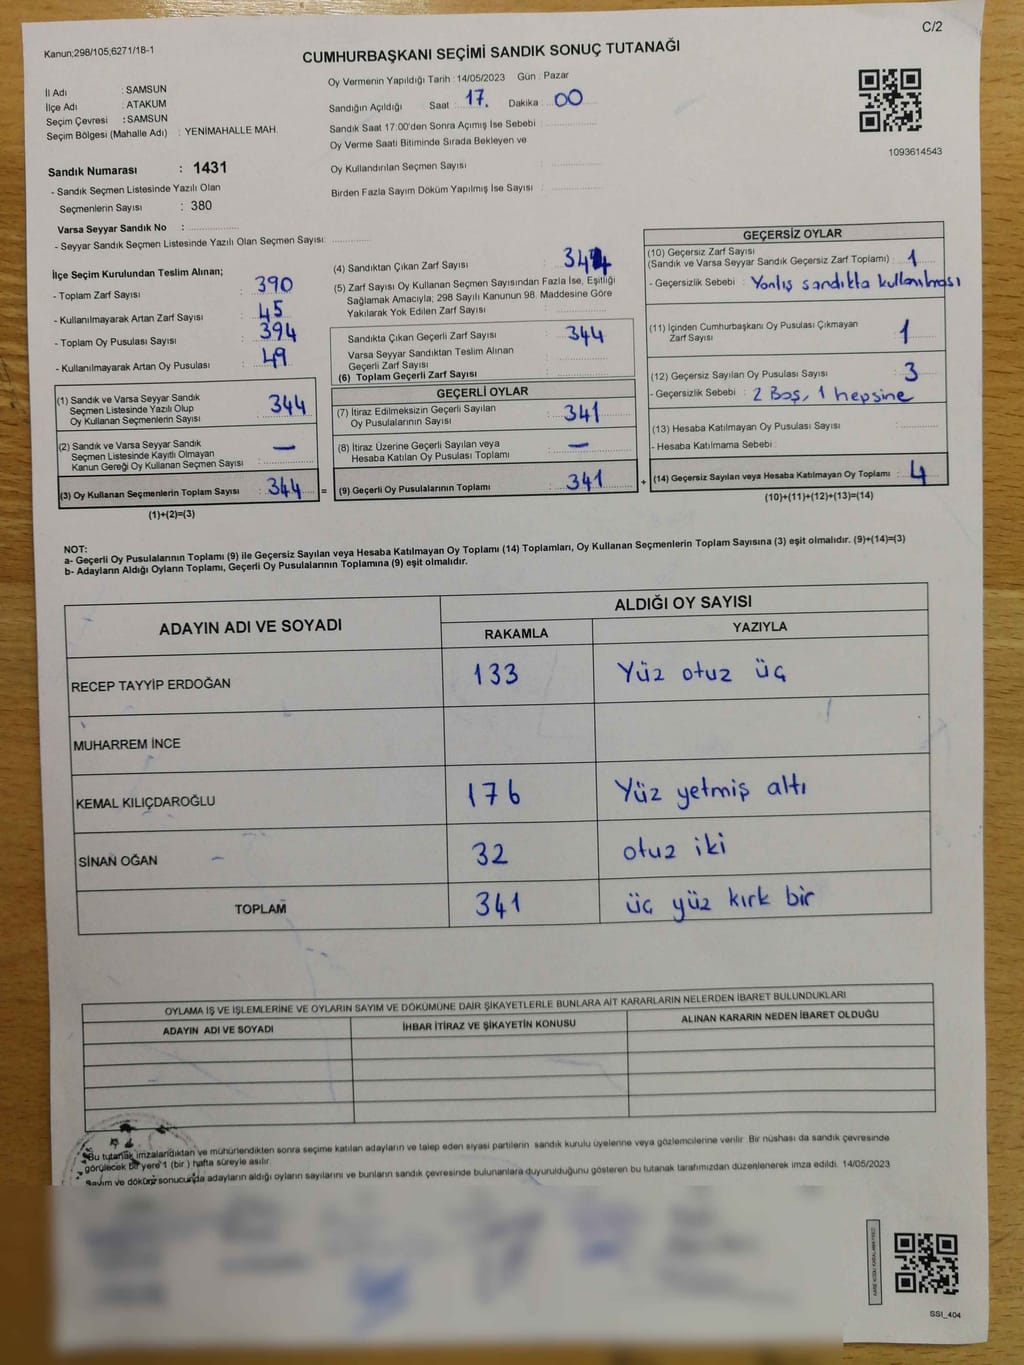 C/2
Kanun;298/105,6271/18-1
CUMHURBAŞKANI SEÇİMİ SANDIK SONUÇ TUTANAĞI
İl Adı : SAMSUN
İlçe Adı : ATAKUM
Seçim Çevresi : SAMSUN
Seçim Bölgesi (Mahalle Adı) : YENİMAHALLE MAH.
Sandık Numarası : 1431
- Sandık Seçmen Listesinde Yazılı Olan
Seçmenlerin Sayısı : 380
Varsa Seyyar Sandık No :
- Seyyar Sandık Seçmen Listesinde Yazılı Olan Seçmen Sayısı:
Oy Vermenin Yapıldığı Tarih : 14/05/2023 Gün : Pazar
Sandığın Açıldığı Saat : 17. Dakika : 00
Sandık Saat 17:00'den Sonra Açımış İse Sebebi :
Oy Verme Saati Bitiminde Sırada Bekleyen ve
Oy Kullandırılan Seçmen Sayısı :
Birden Fazla Sayım Döküm Yapılmış İse Sayısı :
1093614543
İlçe Seçim Kurulundan Teslim Alınan;
- Toplam Zarf Sayısı : 390
- Kullanılmayarak Artan Zarf Sayısı : 45
- Toplam Oy Pusulası Sayısı : 394
- Kullanılmayarak Artan Oy Pusulası : 49
(1) Sandık ve Varsa Seyyar Sandık
Seçmen Listesinde Yazılı Olup
Oy Kullanan Seçmenlerin Sayısı : 344
(2) Sandık ve Varsa Seyyar Sandık
Seçmen Listesinde Kayıtlı Olmayan
Kanun Gereği Oy Kullanan Seçmen Sayısı : —
(3) Oy Kullanan Seçmenlerin Toplam Sayısı : 344 =
(1)+(2)=(3)
(4) Sandıktan Çıkan Zarf Sayısı : 344
(5) Zarf Sayısı Oy Kullanan Seçmen Sayısından Fazla İse, Eşitliği
Sağlamak Amacıyla; 298 Sayılı Kanunun 98. Maddesine Göre
Yakılarak Yok Edilen Zarf Sayısı :
Sandıkta Çıkan Geçerli Zarf Sayısı : 344
Varsa Seyyar Sandıktan Teslim Alınan
Geçerli Zarf Sayısı :
(6) Toplam Geçerli Zarf Sayısı :
GEÇERLİ OYLAR
(7) İtiraz Edilmeksizin Geçerli Sayılan
Oy Pusulalarının Sayısı : 341
(8) İtiraz Üzerine Geçerli Sayılan veya
Hesaba Katılan Oy Pusulası Toplamı : —
(9) Geçerli Oy Pusulalarının Toplamı : 341 +
GEÇERSİZ OYLAR
(10) Geçersiz Zarf Sayısı
(Sandık ve Varsa Seyyar Sandık Geçersiz Zarf Toplamı) : 1
- Geçersizlik Sebebi : Yanlış sandıkta kullanılması
(11) İçinden Cumhurbaşkanı Oy Pusulası Çıkmayan
Zarf Sayısı : 1
(12) Geçersiz Sayılan Oy Pusulası Sayısı : 3
- Geçersizlik Sebebi : 2 Boş, 1 hepsine
(13) Hesaba Katılmayan Oy Pusulası Sayısı :
- Hesaba Katılmama Sebebi :
(14) Geçersiz Sayılan veya Hesaba Katılmayan Oy Toplamı : 4
(10)+(11)+(12)+(13)=(14)
NOT:
a- Geçerli Oy Pusulalarının Toplamı (9) ile Geçersiz Sayılan veya Hesaba Katılmayan Oy Toplamı (14) Toplamları, Oy Kullanan Seçmenlerin Toplam Sayısına (3) eşit olmalıdır. (9)+(14)=(3)
b- Adayların Aldığı Oyların Toplamı, Geçerli Oy Pusulalarının Toplamına (9) eşit olmalıdır.
ADAYIN ADI VE SOYADI ALDIĞI OY SAYISI
RAKAMLA YAZIYLA
RECEP TAYYİP ERDOĞAN 133 Yüz otuz üç
MUHARREM İNCE
KEMAL KILIÇDAROĞLU 176 Yüz yetmiş altı
SİNAN OĞAN 32 otuz iki
TOPLAM 341 üç yüz kırk bir
OYLAMA İŞ VE İŞLEMLERİNE VE OYLARIN SAYIM VE DÖKÜMÜNE DAİR ŞİKAYETLERLE BUNLARA AİT KARARLARIN NELERDEN İBARET BULUNDUKLARI
ADAYIN ADI VE SOYADI İHBAR İTİRAZ VE ŞİKAYETİN KONUSU ALINAN KARARIN NEDEN İBARET OLDUĞU
Bu tutanak imzalandıktan ve mühürlendikten sonra seçime katılan adayların ve talep eden siyasi partilerin sandık kurulu üyelerine veya gözlemcilerine verilir. Bir nüshası da sandık çevresinde
görülecek bir yere 1 (bir ) hafta süreyle asılır.
Sayım ve döküm sonucunda adayların aldığı oyların sayılarını ve bunların sandık çevresinde bulunanlara duyurulduğunu gösteren bu tutanak tarafımızdan düzenlenerek imza edildi. 14/05/2023
SSI_404